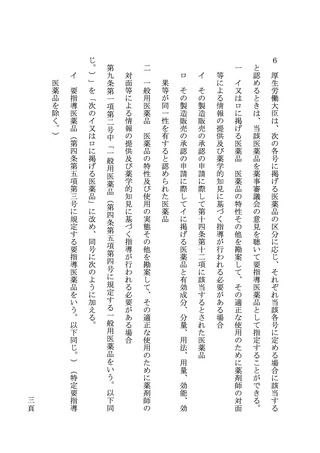 ６　厚生労働大臣は、次の各号に掲げる医薬品の区分に応じ、それぞれ当該各号に定める場合に該当する
と認めるときは、当該医薬品を薬事審議会の意見を聴いて要指導医薬品として指定することができる。
一　イ又はロに掲げる医薬品　医薬品の特性その他を勘案して、その適正な使用のために薬剤師の対面
等による情報の提供及び薬学的知見に基づく指導が行われる必要がある場合
イ　その製造販売の承認の申請に際して第十四条第十二項に該当するとされた医薬品
ロ　その製造販売の承認の申請に際してイに掲げる医薬品と有効成分、分量、用法、用量、効能、効
果等が同一性を有すると認められた医薬品
二　一般用医薬品　医薬品の特性及び使用の実態その他を勘案して、その適正な使用のために薬剤師の
対面等による情報の提供及び薬学的知見に基づく指導が行われる必要がある場合
第九条第一項第二号中「一般用医薬品（第四条第五項第四号に規定する一般用医薬品をいう。以下同
じ。）」を「次のイ又はロに掲げる医薬品」に改め、同号に次のように加える。
イ　要指導医薬品（第四条第五項第三号に規定する要指導医薬品をいう。以下同じ。）（特定要指導
医薬品を除く。）
三頁